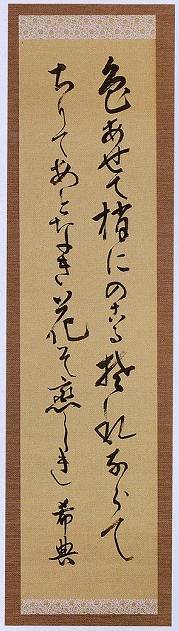 色あせて梢にのこるそれならて
ちりてあとなき花そ戀しき 希典